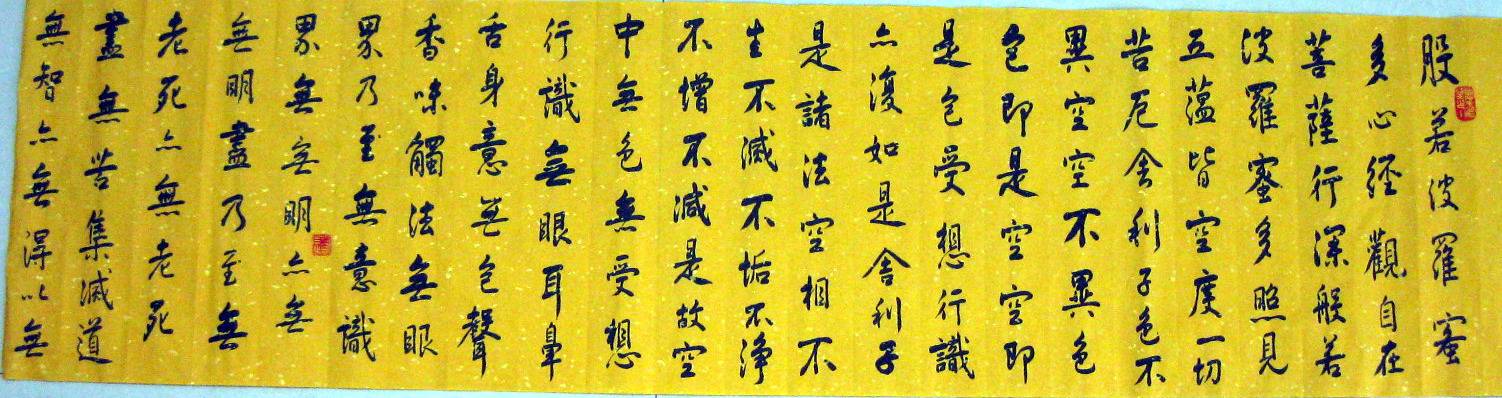 般若波羅蜜
多心經觀自在
菩薩行深般若
波羅蜜多照見
五蘊皆空度一切
苦厄舍利子色不
異空空不異色
色即是空空即
是色受想行識
亦復如是舍利子
是諸法空相不
生不滅不垢不淨
不增不減是故空
中無色無受想
行識無眼耳鼻
舌身意無色聲
香味觸法無眼
界乃至無意識
界無無明亦無
無明盡乃至無
老死亦無老死
盡無苦集滅道
無智亦無得以無